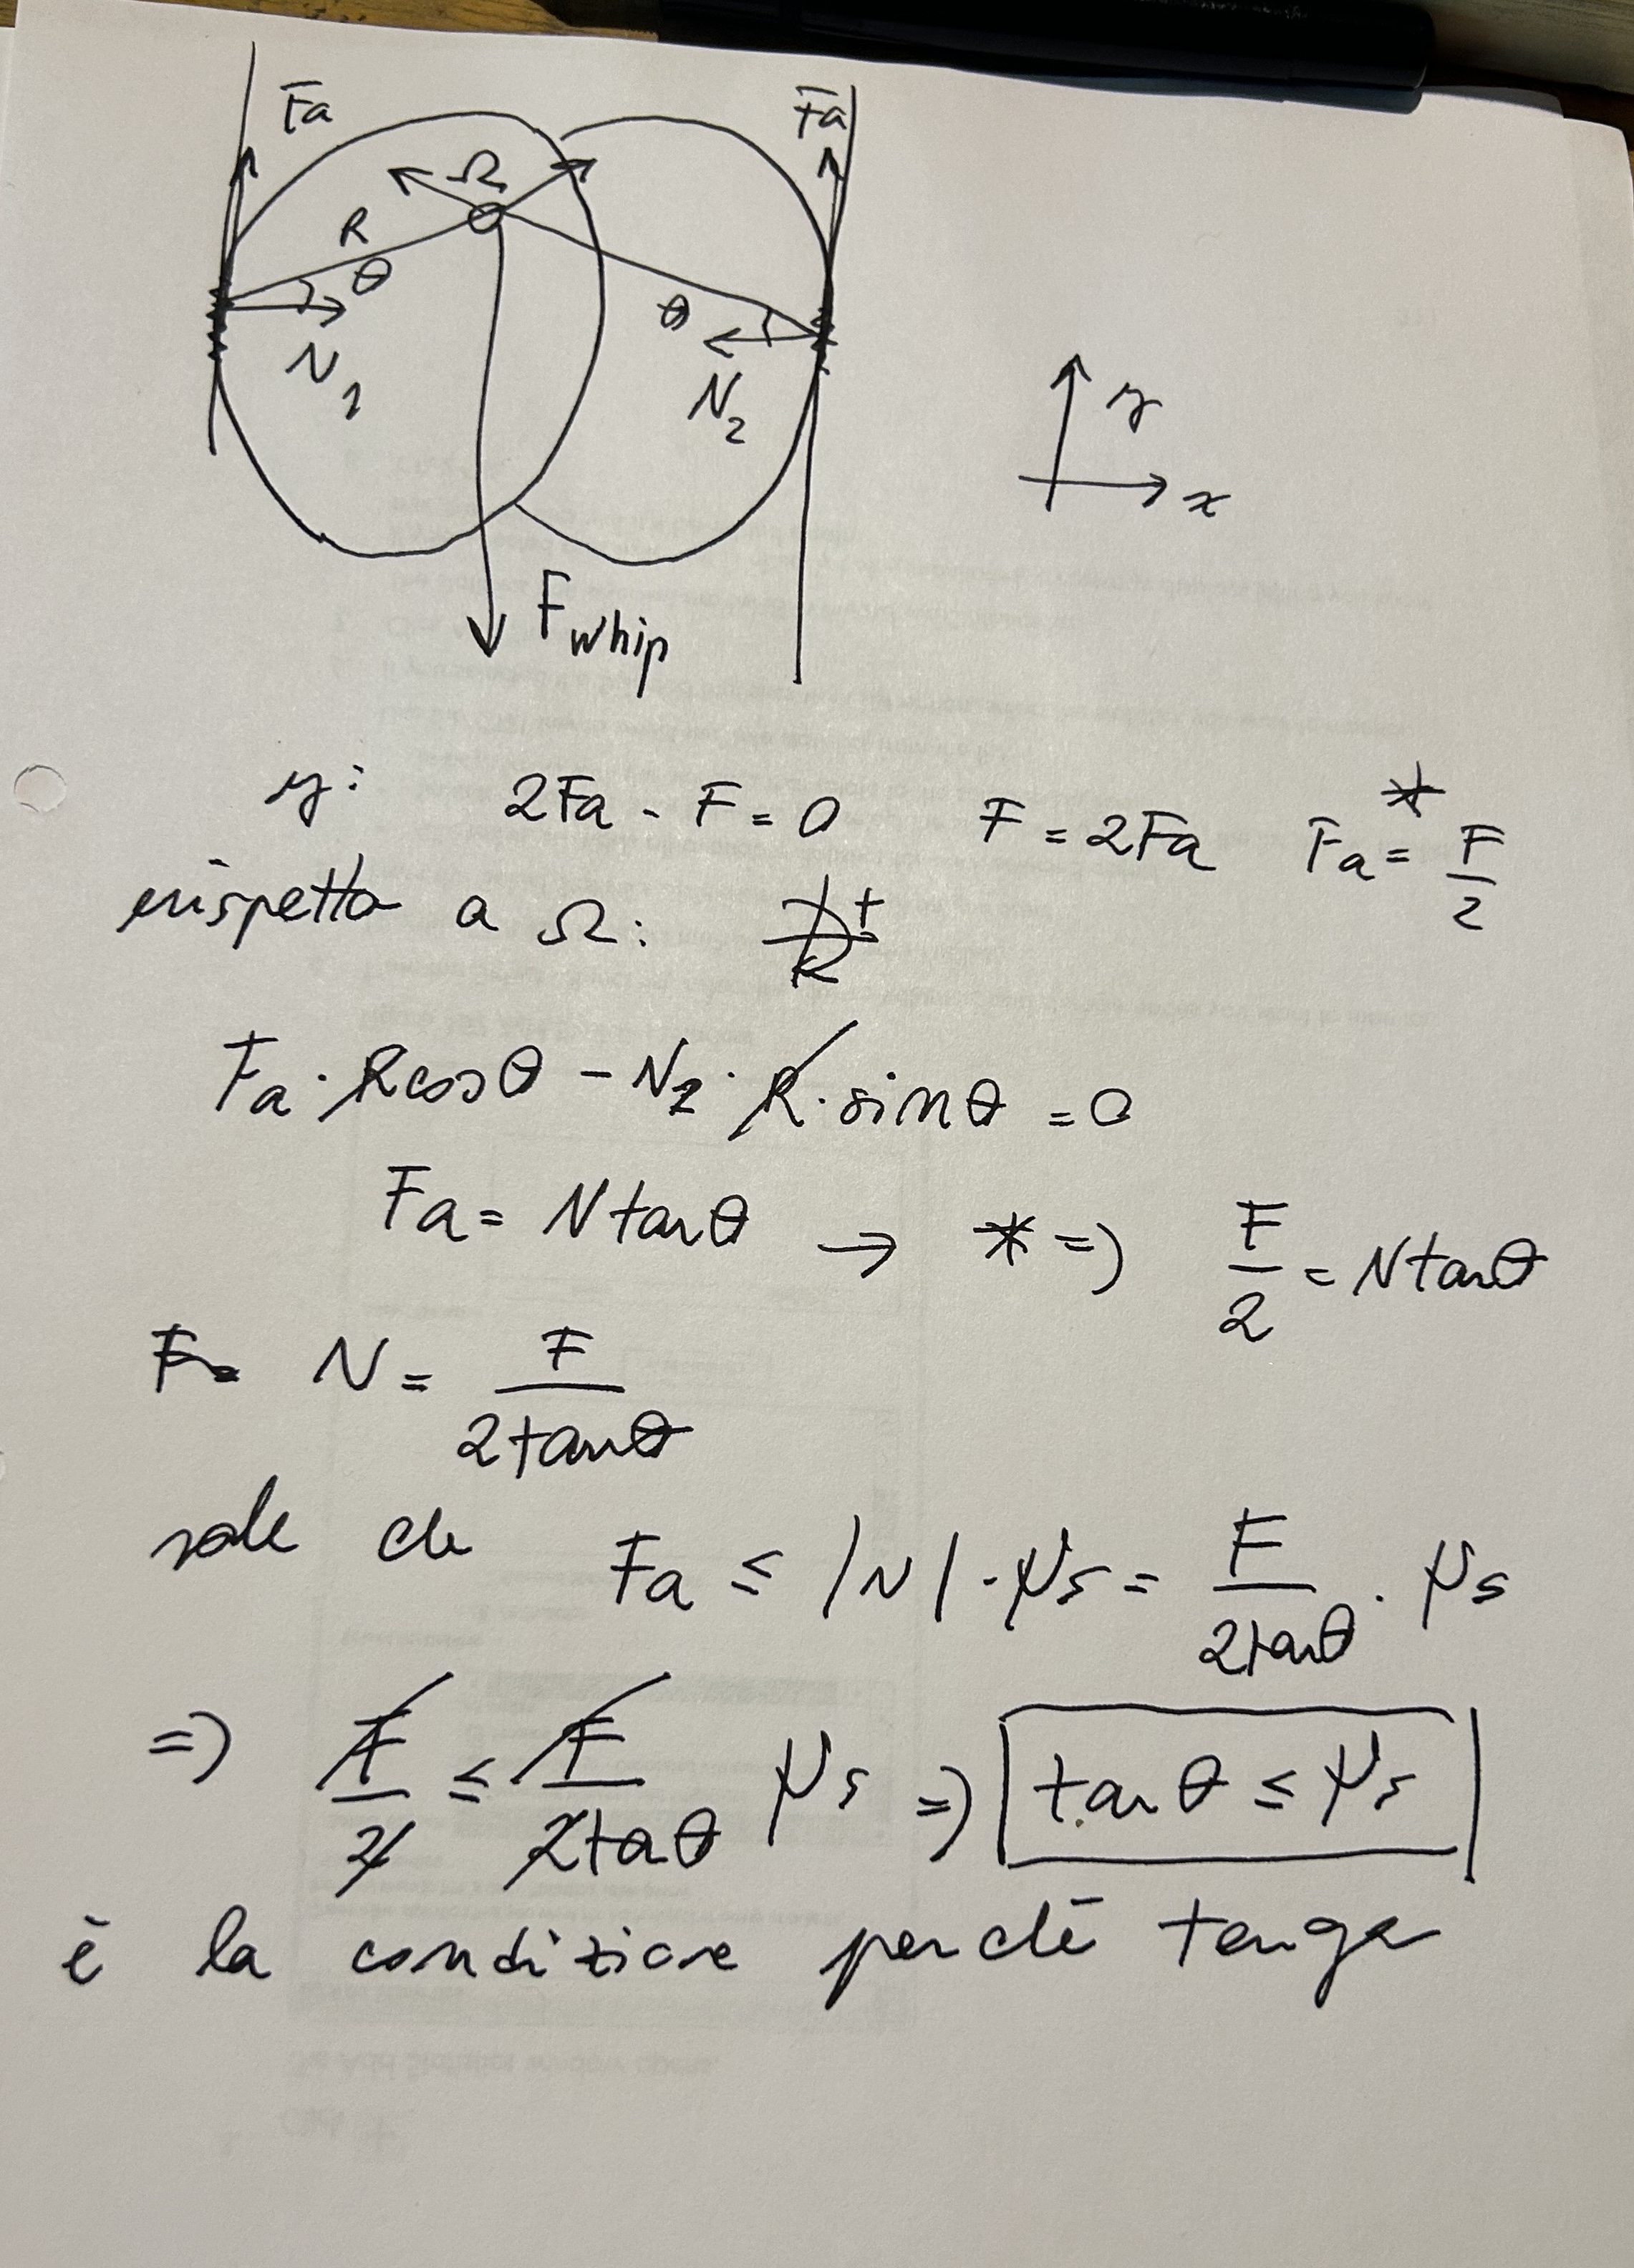 Fa Fa
Ω
R
θ θ
N₁ N₂
y
x
F whip
y: 2Fa - F = 0 F = 2Fa Fa =* F/2
rispetto a Ω: +
Fa · R cos θ - N₂ · R · sin θ = 0
Fa = N tan θ → * => F/2 = N tan θ
N = F/(2 tan θ)
vale che Fa ≤ |N| · μs = F/(2 tan θ) · μs
=> F/2 ≤ F/(2 ta θ) μs => tan θ ≤ μs
è la condizione perché tenga